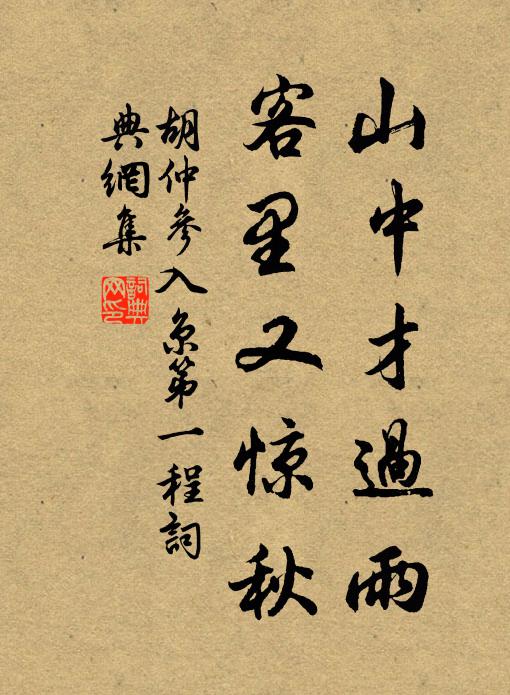 山中才過雨
客里又惊秋
胡仲參入京第一程詞
典網集
詞典网印